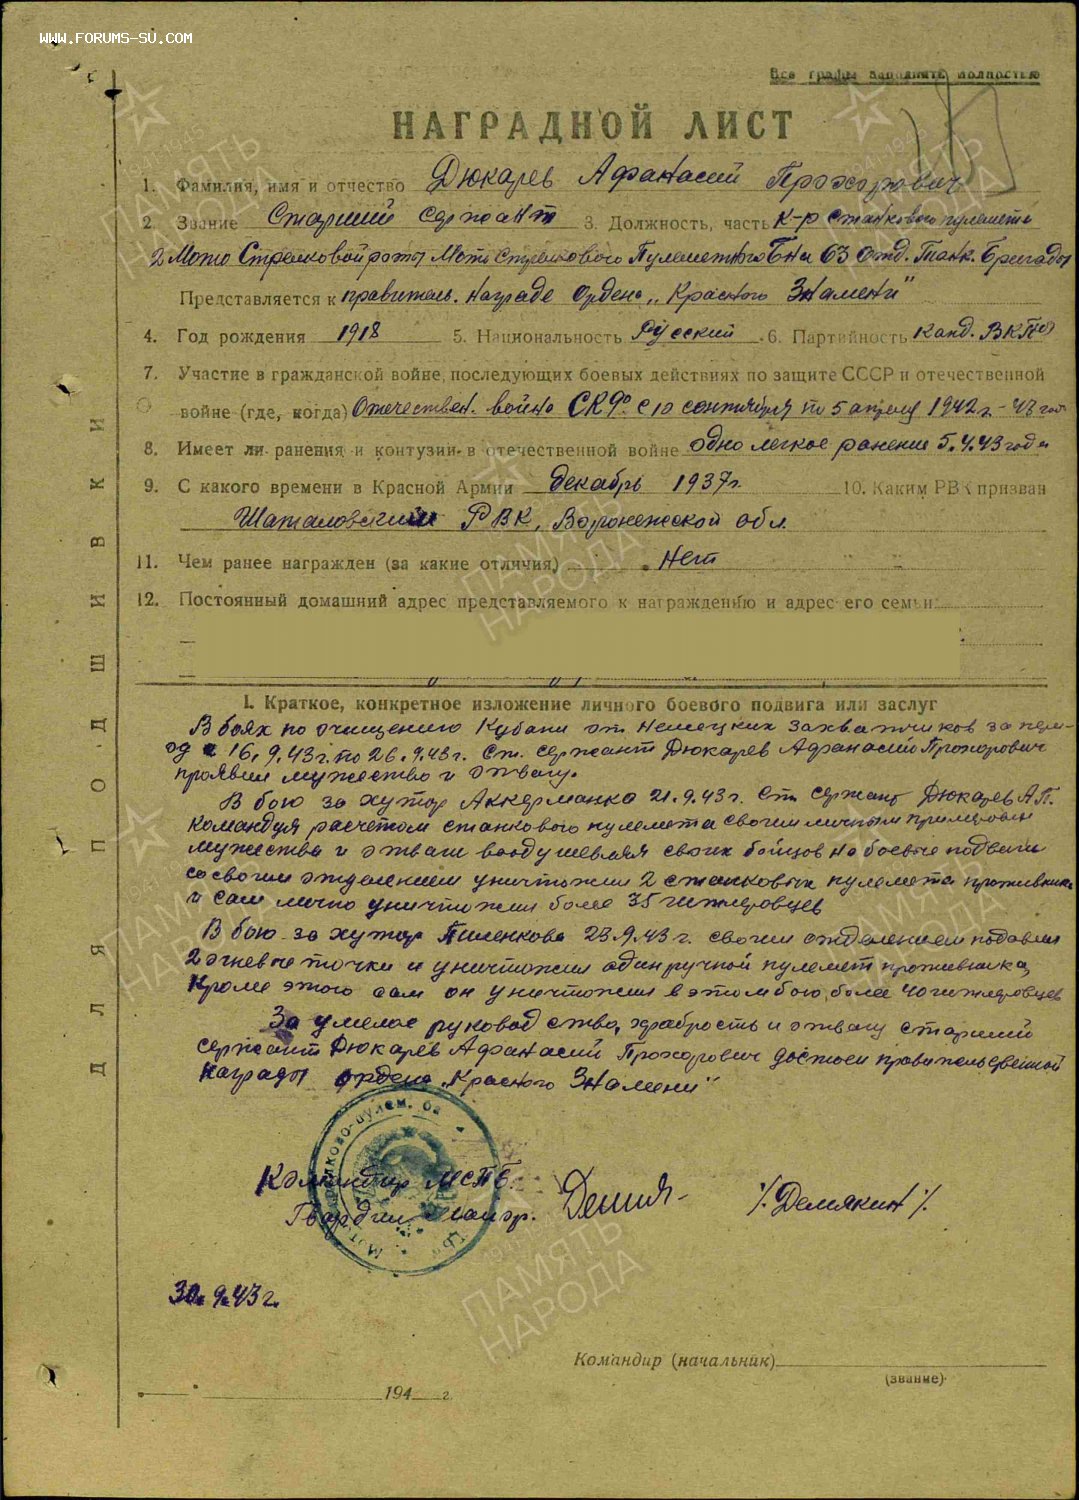 WWW.FORUMS-SU.COM
Все графы заполнять полностью
НАГРАДНОЙ ЛИСТ
1. Фамилия, имя и отчество Дюкарев Афанасий Прохорович
2. Звание Старший сержант 3. Должность, часть к-р станкового пулемета
2 Мото Стрелковой роты Мото Стрелкового Пулеметного Б-на 63 Отд. Танк. Бригады
Представляется к правитель. награде ордена „Красного Знамени"
4. Год рождения 1918 5. Национальность Русский 6. Партийность канд. ВКПб
7. Участие в гражданской войне, последующих боевых действиях по защите СССР и отечественной
войне (где, когда) Отечествен. война СКФ. с 10 сентября по 5 апрель 1942 г. - 43 год
8. Имеет ли ранения и контузии в отечественной войне одно легкое ранение 5.4.43 года
9. С какого времени в Красной Армии декабрь 1937 г. 10. Каким РВК призван
Шаталовский РВК, Воронежской обл.
11. Чем ранее награжден (за какие отличия) Нет
12. Постоянный домашний адрес представляемого к награждению и адрес его семьи
I. Краткое, конкретное изложение личного боевого подвига или заслуг
В боях по очищению Кубани от немецких захватчиков за пери-
од с 16.9.43 г. по 26.9.43 г. ст. сержант Дюкарев Афанасий Прохорович
проявил мужество и отвагу.
В бою за хутор Аккерманка 21.9.43 г. ст. сержант Дюкарев А.П.
командуя расчетом станкового пулемета своим личным примером
мужества и отваги воодушевляя своих бойцов на боевые подвиги
со своим отделением уничтожил 2 станковых пулемета противника
и сам лично уничтожил более 35 гитлеровцев
В бою за хутор Пиленково 23.9.43 г. своим отделением подавил
2 огневые точки и уничтожил один ручной пулемет противника,
Кроме этого сам он уничтожил в этом бою, более 40 гитлеровцев
За умелое руководство, храбрость и отвагу старший
сержант Дюкарев Афанасий Прохорович достоен правительственной
награды ордена „Красного Знамени"
Командир МСПБ.
Гвардии Майор. /Демякин/
30.9.43 г.
Командир (начальник)
(звание)
194 г.
ДЛЯ ПОДШИВКИ
ПАМЯТЬ НАРОДА
1941-1945